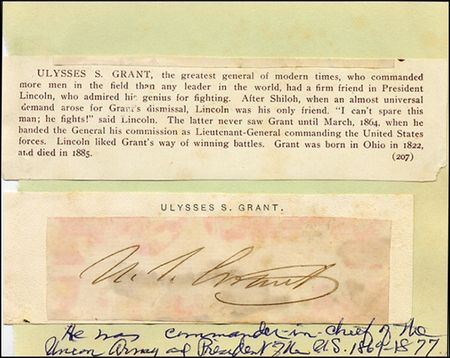 ULYSSES S. GRANT, the greatest general of modern times, who commanded
more men in the field than any leader in the world, had a firm friend in President
Lincoln, who admired his genius for fighting. After Shiloh, when an almost universal
demand arose for Grant's dismissal, Lincoln was his only friend. "I can't spare this
man; he fights!" said Lincoln. The latter never saw Grant until March, 1864, when he
handed the General his commission as Lieutenant-General commanding the United States
forces. Lincoln liked Grant's way of winning battles. Grant was born in Ohio in 1822,
and died in 1885. (207)
ULYSSES S. GRANT.
U. S. Grant
He was commander-in-chief of the
Union Army and President of the U.S. 1869-1877